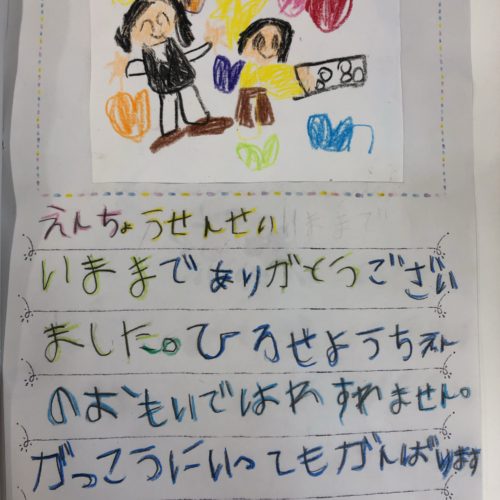 えんちょうせんせい いままで
いままでありがとうござい
ました。ひろせようちえん
のおもいではわすれません。
がっこうにいってもがんばります